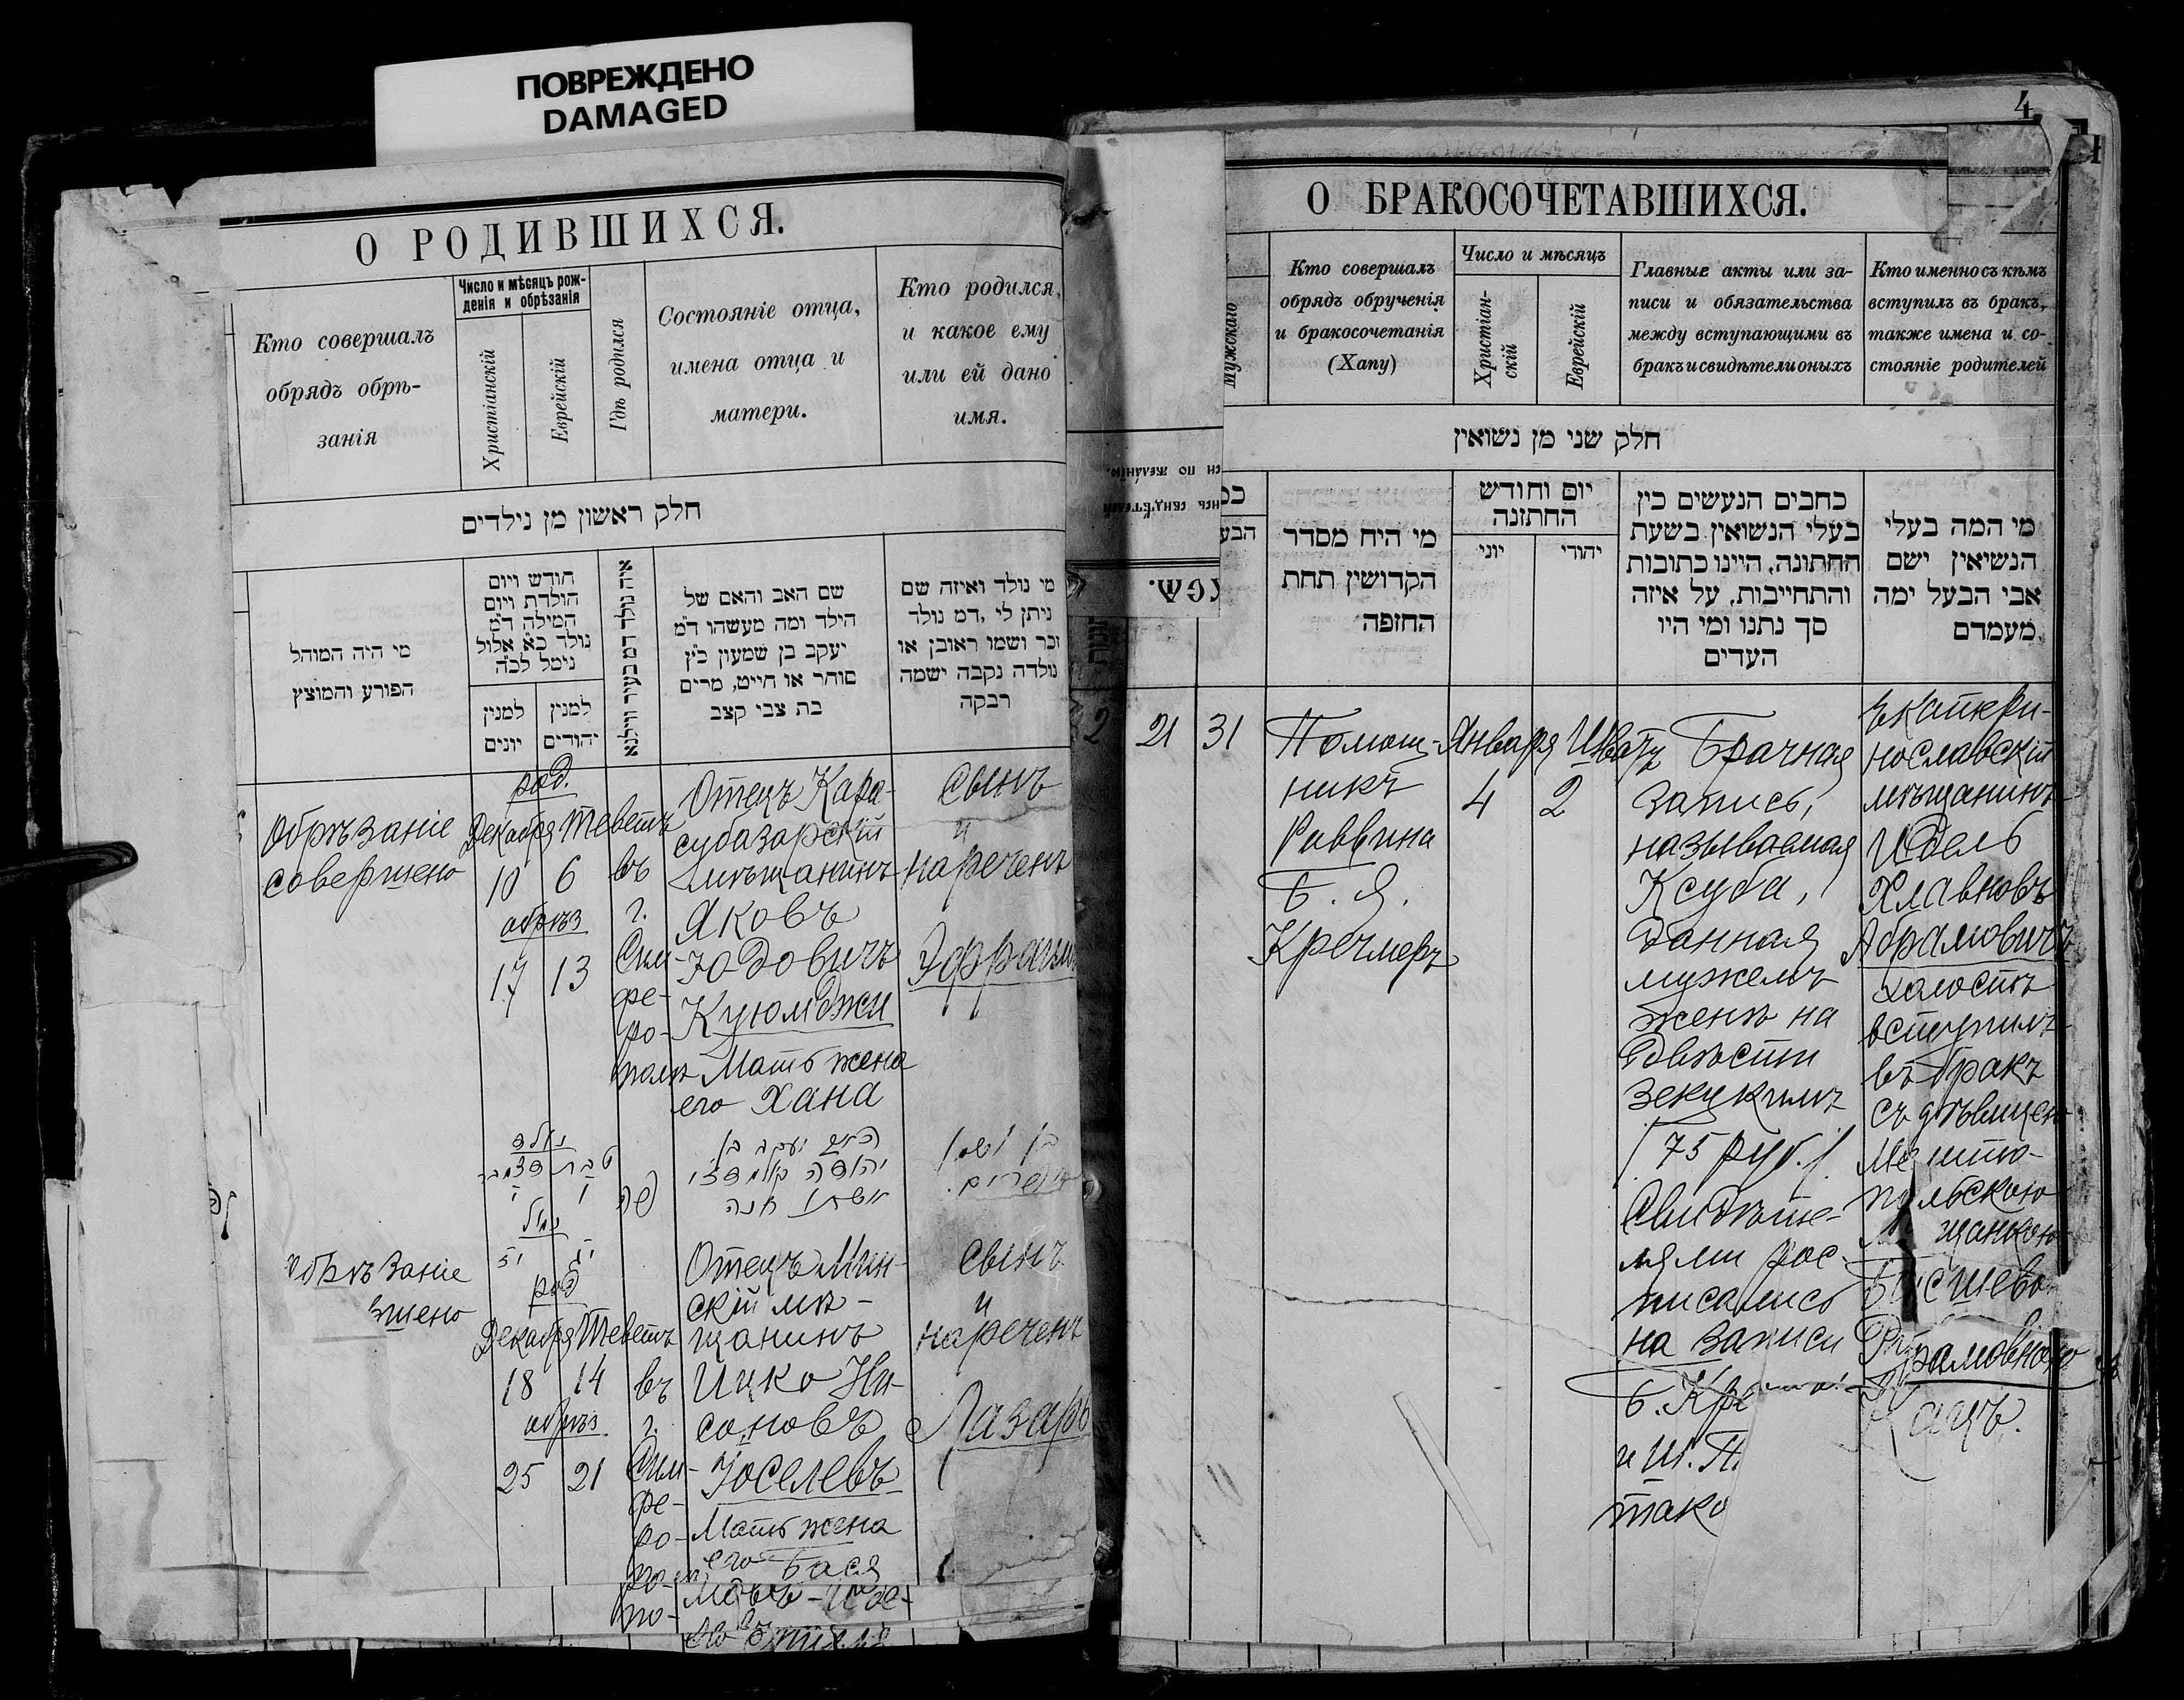 ПОВРЕЖДЕНО
DAMAGED
О РОДИВШИХСЯ.
Кто совершалъ
обрядъ обрѣ-
занія
Число и мѣсяцъ рож-
денія и обрѣзанія
Христіанскій
Еврейскій
Гдѣ родился
Состояніе отца,
имена отца и
матери.
Кто родился,
и какое ему
или ей дано
имя.
חלק ראשון מן נילדים
מי היה המוהל
הפורע והמוצץ
חודש ויום
הולדת ויום
המילה ד״מ
נולד כ״א אלול
נימל לכ״ה
למנין
יונים
למנין
יהודים
שם האב והאם של
הילד ומה מעשהו ד״מ
יעקב בן שמעון כ״ץ
סוחר או חייט, מרים
בת צבי קצב
מי נולד ואיזה שם
ניתן לי, דמ נולד
זכר ושמו ראובן או
נולדה נקבה ישמה
רבקה
Обрѣзаніе
совершено
род.
Декабря Теветъ
10 6
обрѣз
17 13
въ
г.
Сим-
фе-
ро-
полѣ
Отецъ Кара-
субазарскій
мѣщанинъ
Яковъ
Юдовичъ
Куюмджи
Мать жена
его Хана
Сынъ
и
нареченъ
Эфраимъ
נולד
טבת דצמבר
ו י
נמול
יג יז
יעקב בן
יהודה קוימדזי
אשתו חנה
בן ושמו
אפרים
Обрѣзаніе
род
Декабря Теветъ
18 14
обрѣз
25 21
въ
г.
Сим-
фе-
ро-
по-
Отецъ Мин-
скій мѣ-
щанинъ
Ицко На-
сановъ
Іоселевъ
Мать жена
его Бася
Сынъ
и
нареченъ
Лазарь
4
О БРАКОСОЧЕТАВШИХСЯ.
Мужскаго
Кто совершалъ
обрядъ обрученія
и бракосочетанія
(Хапу)
Число и мѣсяцъ
Христіан-
скій
Еврейскій
Главные акты или за-
писи и обязательства
между вступающими въ
бракъ и свидѣтели оныхъ
Кто именно съ кѣмъ
вступилъ въ бракъ,
также имена и со-
стояніе родителей
חלק שני מן נשואין
מי היח מסדר
הקדושין תחת
החזפה
יום וחודש
החתזנה
יוני
יהודי
כחבים הנעשים כין
בעלי הנשואין בשעת
החתונה, היינו כתובות
והתחייבות, על איזה
סך נתנו ומי היו
העדים
מי המה בעלי
הנשיאין ישם
אבי הבעל ימה
מעמדם
2 21 31
Помощ-
никъ
Раввина
Б. Я.
Кречмеръ
Января Шватъ
4 2
Брачная
запись,
называемая
Ксуба,
данная
мужемъ
женѣ на
двѣсти
зекукимъ
/75 руб./
Свидѣте-
лями рос-
писались
на записи
и Ш. П.
тако
Екатери-
нославскій
мѣщанинъ
Идель
Хлавновъ
Абрамовичъ
холостъ
вступилъ
въ бракъ
съ дѣвицею
щанкою
Кацъ.